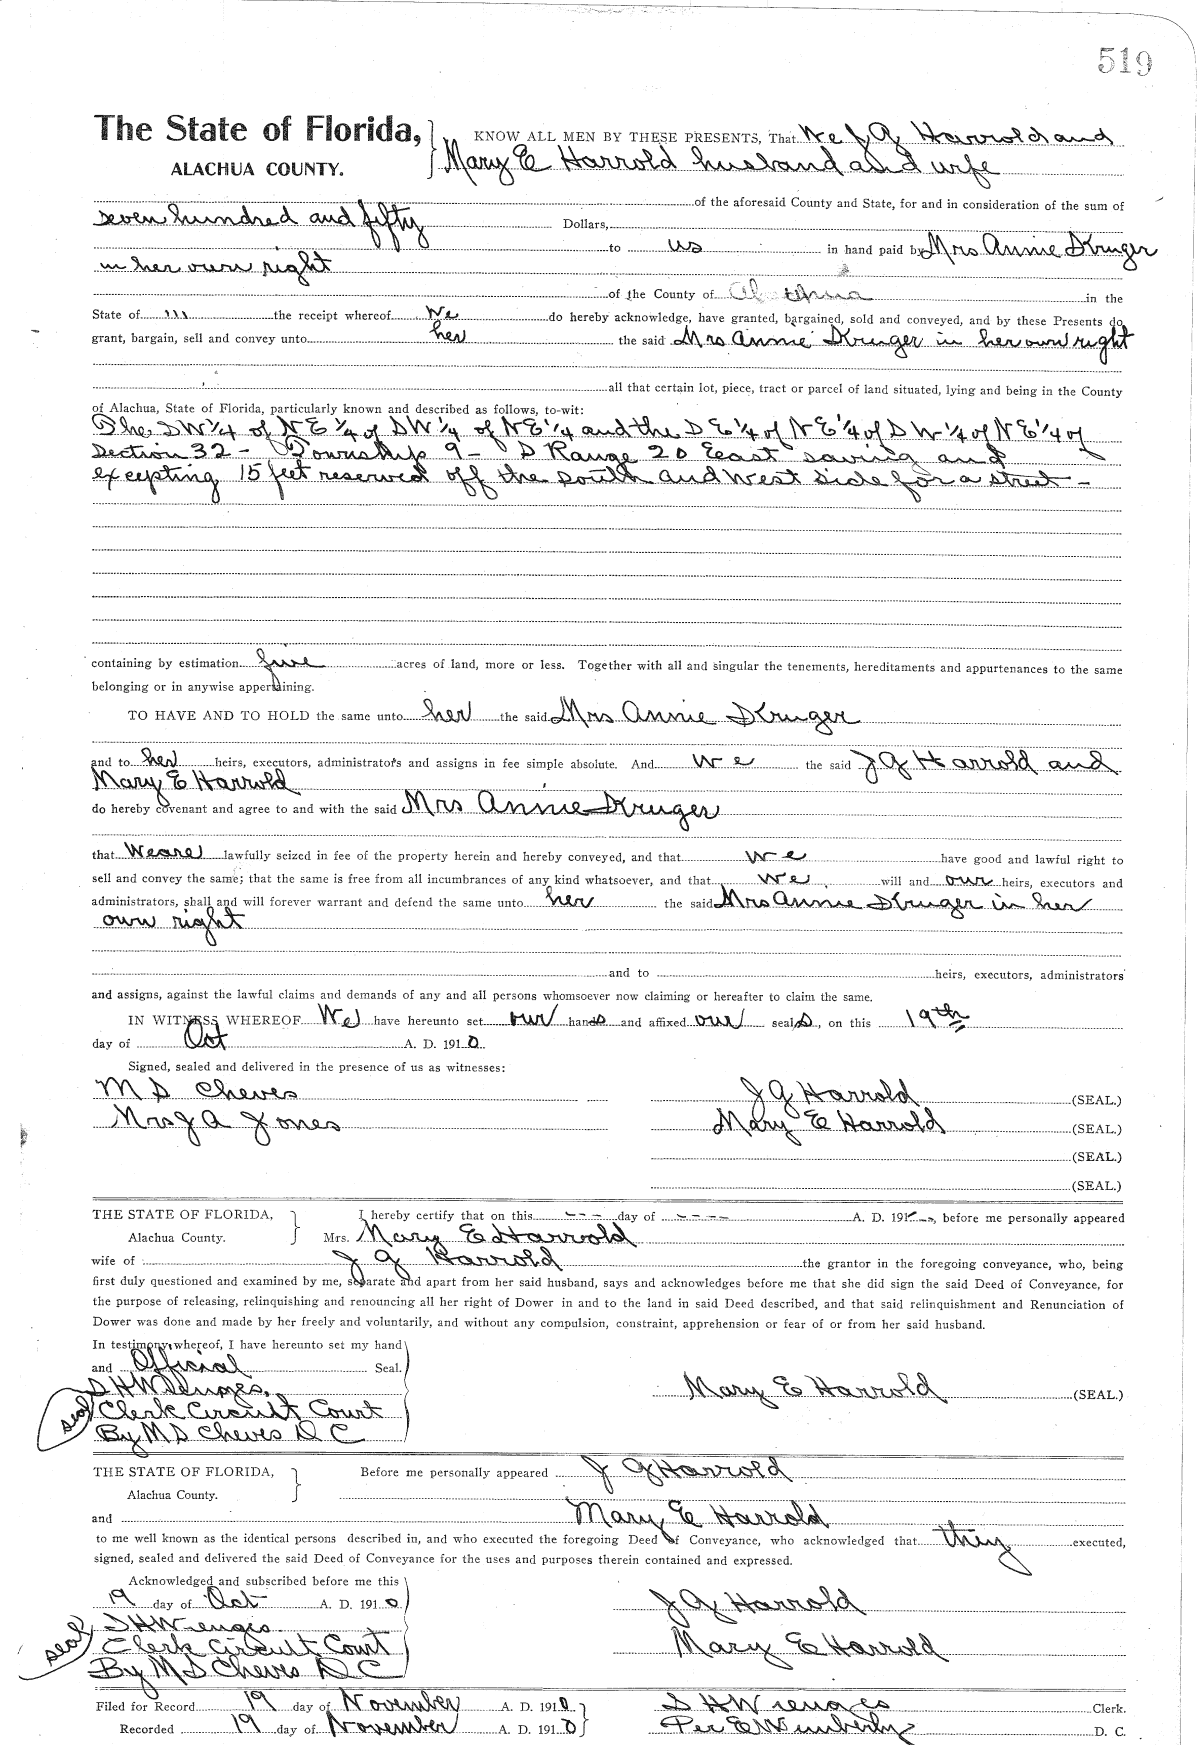 519
The State of Florida, KNOW ALL MEN BY THESE PRESENTS, That We J G Harrold and
ALACHUA COUNTY. Mary E Harrold husband and wife
of the aforesaid County and State, for and in consideration of the sum of
seven hundred and fifty Dollars,
to us in hand paid by Mrs Annie Kruger
in her own right
of the County of Alachua in the
State of the receipt whereof We do hereby acknowledge, have granted, bargained, sold and conveyed, and by these Presents do
grant, bargain, sell and convey unto her the said Mrs Annie Kruger in her own right
all that certain lot, piece, tract or parcel of land situated, lying and being in the County
of Alachua, State of Florida, particularly known and described as follows, to-wit:
The SW 1/4 of NE 1/4 of SW 1/4 of NE 1/4 and the SE 1/4 of NE 1/4 of SW 1/4 of NE 1/4 of
Section 32 - Township 9 - S Range 20 East saving and
excepting 15 feet reserved off the south and west side for a street -
containing by estimation five acres of land, more or less. Together with all and singular the tenements, hereditaments and appurtenances to the same
belonging or in anywise appertaining.
TO HAVE AND TO HOLD the same unto her the said Mrs Annie Kruger
and to her heirs, executors, administrators and assigns in fee simple absolute. And we the said J G Harrold and
Mary E Harrold
do hereby covenant and agree to and with the said Mrs Annie Kruger
that We are lawfully seized in fee of the property herein and hereby conveyed, and that we have good and lawful right to
sell and convey the same; that the same is free from all incumbrances of any kind whatsoever, and that we will and our heirs, executors and
administrators, shall and will forever warrant and defend the same unto her the said Mrs Annie Kruger in her
own right
and to heirs, executors, administrators
and assigns, against the lawful claims and demands of any and all persons whomsoever now claiming or hereafter to claim the same.
IN WITNESS WHEREOF We have hereunto set our hands and affixed our seals, on this 19th
day of Oct A. D. 1910
Signed, sealed and delivered in the presence of us as witnesses:
M S Cheves J G Harrold (SEAL.)
Mrs J A Jones Mary E Harrold (SEAL.)
(SEAL.)
(SEAL.)
THE STATE OF FLORIDA, I hereby certify that on this --- day of ---- A. D. 191--, before me personally appeared
Alachua County. Mrs. Mary E Harrold
wife of J G Harrold the grantor in the foregoing conveyance, who, being
first duly questioned and examined by me, separate and apart from her said husband, says and acknowledges before me that she did sign the said Deed of Conveyance, for
the purpose of releasing, relinquishing and renouncing all her right of Dower in and to the land in said Deed described, and that said relinquishment and Renunciation of
Dower was done and made by her freely and voluntarily, and without any compulsion, constraint, apprehension or fear of or from her said husband.
In testimony whereof, I have hereunto set my hand
and Official Seal.
S H Wienges, Mary E Harrold (SEAL.)
seal Clerk Circuit Court
By M S Cheves D C
THE STATE OF FLORIDA, Before me personally appeared J G Harrold
Alachua County.
and Mary E Harrold
to me well known as the identical persons described in, and who executed the foregoing Deed of Conveyance, who acknowledged that they executed,
signed, sealed and delivered the said Deed of Conveyance for the uses and purposes therein contained and expressed.
Acknowledged and subscribed before me this
19 day of Oct A. D. 1910 J G Harrold
S H Wienges
seal Clerk Circuit Court Mary E Harrold
By M S Cheves D C
Filed for Record 19 day of November A. D. 1910 S H Wienges Clerk.
Recorded 19 day of November A. D. 1910 Per E Wimberly D. C.